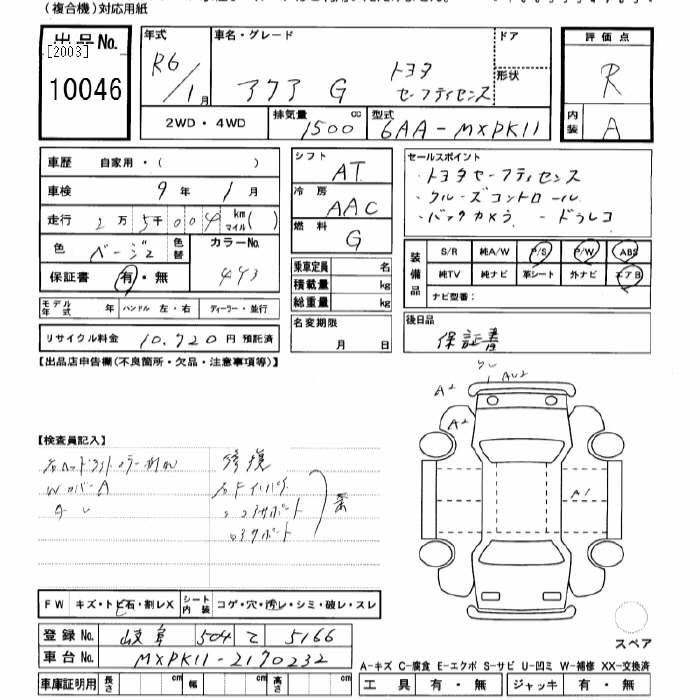 (複合機)対応用紙
出品No.
[2003]
10046
年式
R6/1月
車名・グレード
アクア G
トヨタ
セーフティセンス
ドア
形状
評価点
R
内装
A
2WD・4WD
排気量
1500 cc
型式
6AA-MXPK11
車歴 自家用・( )
車検 9年 1月
走行 2万5千004 km マイル( )
色 ベージュ 色替
カラーNo.
493
保証書 有・無
モデル年式 年 ハンドル 左・右 ディーラー・並行
リサイクル料金 10,720円 預託済
シフト
AT
冷房
AAC
燃料
G
乗車定員 名
積載量 kg
総重量 kg
名変期限
月 日
セールスポイント
・トヨタセーフティセンス
・クルーズコントロール
・バックカメラ ・ドラレコ
装備品
S/R 純A/W P/S P/W ABS
純TV 純ナビ 革シート 外ナビ エアB
ナビ型番:
後日品
保証書
【出品店申告欄(不良箇所・欠品・注意事項等)】
【検査員記入】
WカバーA
修復
A2
A2
AU2
A1
FW キズ・トビ石・割レX
シート内装 コゲ・穴・汚レ・シミ・破レ・スレ
登録No. 岐阜 504 て 5166
車台No. MXPK11-2170232
車庫証明用 長さ cm 幅 cm 高さ cm
スペア
A-キズ C-腐食 E-エクボ S-サビ U-凹ミ W-補修 XX-交換済
工具 有・無 ジャッキ 有・無